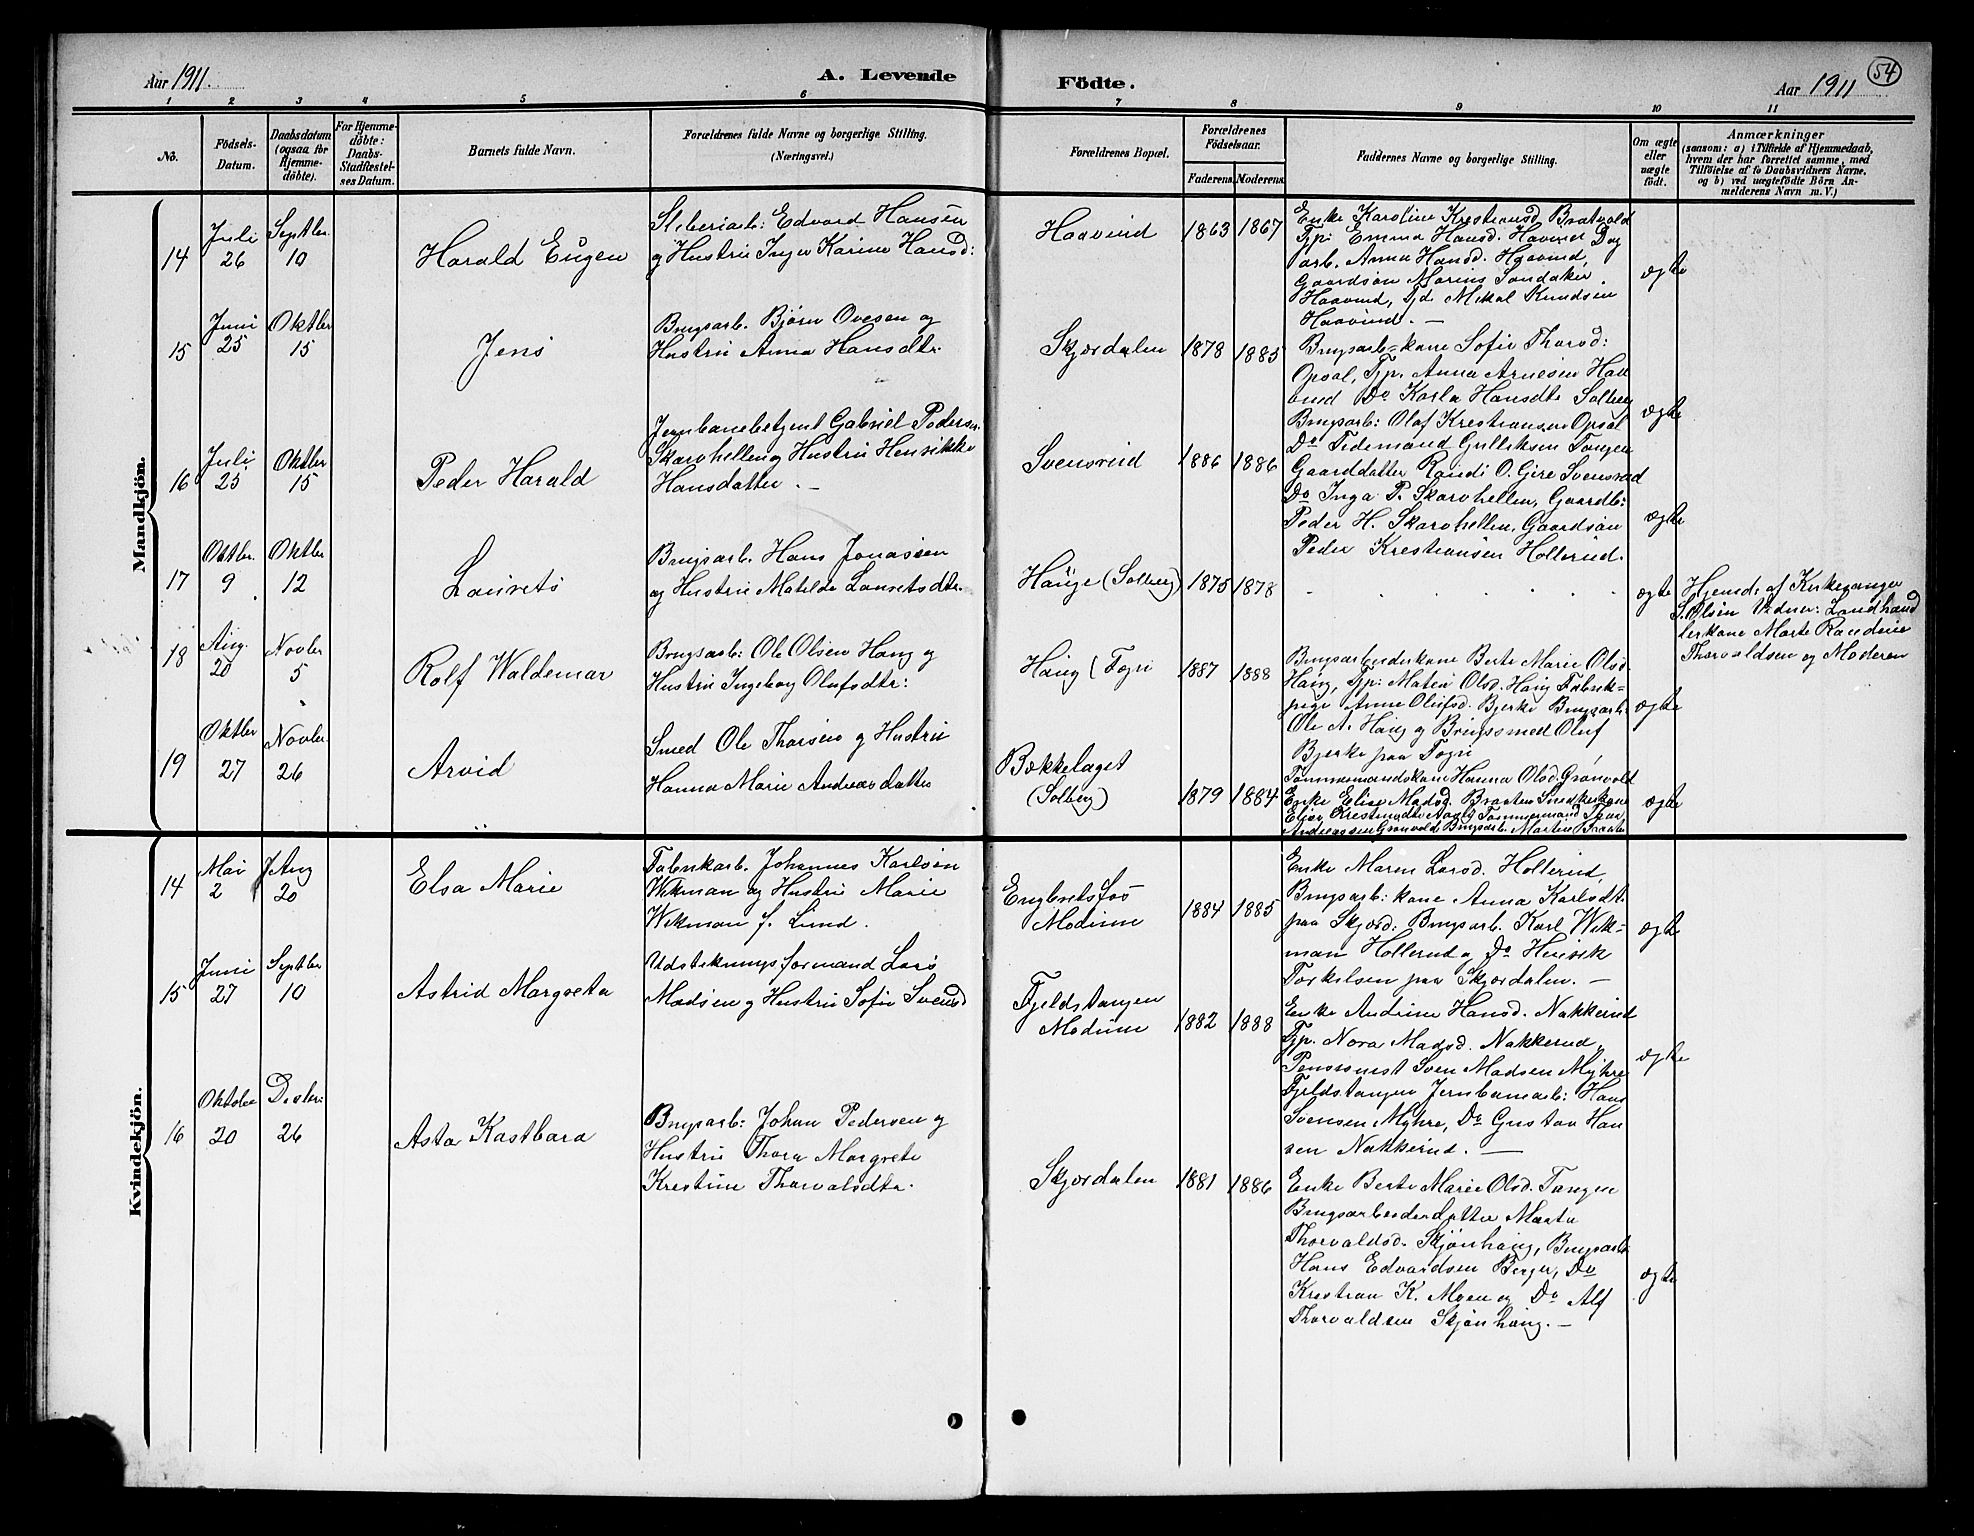 Aar 1911.
A. Levende
Födte.
Aar 1911
54
1 2 3 4 5 6 7 8 9 10 11
No.
Födsels-
Datum.
Daabsdatum
(ogsaa for
Hjemme-
döbte).
For Hjemme-
döbte:
Daabs-
Stadfestel-
ses Datum.
Barnets fulde Navn.
Forældrenes fulde Navne og borgerlige Stilling.
(Næringsvei.)
Forældrenes Bopæl.
Forældrenes
Födselsaar.
Faderens. Moderens.
Faddernes Navne og borgerlige Stilling.
Om ægte
eller
uægte
födt.
Anmærkninger
(saasom: a) i Tilfælde af Hjemmedaab,
hvem der har forrettet samme, med
Tilföielse af to Daabsvidners Navne,
og b) ved uægtefödte Börn An-
melderens Navn m. V.)
Mandkjön.
14
Juli
26
Septbr.
10
Harald Eugen
Sliberiarb: Edvard Hansen
og Hustru Inger Karine Hansd:
Haavind
1863 1867
Enke Karoline Krestiansd. Bratvold
Tjpi Emma Hansd. Haavind Dag
arb. Anna Hansd. Haavind,
Gaardsøn Marius Sandaker
Haavind, Tjd. Mikal Knudsen
Haavind. —
ægte
15
Juni
25
Oktbr
15
Jens
Brugsarb. Bjørn Ovesen og
Hustru Anna Hansdtr.
Skjærdalen
1878 1885
Brugsarb-kone Sofie Thorsd:
Opsal, Tjp. Anna Arnesen Haa
vind Do Karla Hansdtr Solberg
Brugsarb: Olaf Krestiansen Opsal
Do Tidemand Gulliksen Tangen
ægte
16
Juli
25
Oktbr
15
Peder Harald
Jernbanebetjent Gabriel Peders:
Skarvhellen og Hustru Henrikke
Hansdatter. —
Svensrud
1886 1886
Gaarddatter Randi O. Gjere Svensrud
Do Inga P. Skarvhellen, Gaardb:
Peder H. Skarvhellen, Gaardsøn
Peder Krestiansen Hollerud.
ægte
17
Oktbr.
9
Oktbr
12
Laurets
Brugsarb. Hans Jonassen
og Hustru Matilde Lauretsdtr.
Hauge (Solberg)
1875 1878
ægte
Hjemd: af Kirkesanger
S. Olsen Vidner: Landhand
lerkone Marte Randine
Thorvaldsen og Moderen
18
Aug.
20
Novbr
5
Rolf Waldemar
Brugsarb: Ole Olsen Haug og
Hustru Ingeborg Olufsdtr:
Haug (Togri
1887 1888
Brugsarbeiderkone Berte Marie Olsd
Haug, Tjp: Matea Olsd. Haug Fabrik-
pige Anne Olufsd. Bjerke Brugsarb:
Ole A. Haug og Brugssmed Oluf
Bjerke paa Togri
ægte
19
Oktbr
27
Novbr.
26
Arvid
Smed Ole Thorsen og Hustru
Hanna Marie Andreasdatter
Bækkelaget
(Solberg)
1879 1884
Tømmermandskone Hanna Olsd. Grønvold
Enke Elise Madsd. Braaten Snedkerkone
Elise Krestensdtr Tømmermand Thor
Andreassen Grønvold Brugsarb. Martin Braate
ægte
Kvindekjön.
14
Mai
2
Aug
20
Elsa Marie
Fabrikarb. Johannes Karlsen
Wikman og Hustru Marie
Wikman f. Lund.
Engbretsfos
Modum
1884 1885
Enke Maren Larsd. Hollerud,
Brugsarb: kone Anna Karlsdt.
paa Skjærd: Brugsarb. Karl Wik-
man Hollerud og Do Henrik
Torkelsen paa Skjærdalen. —
ægte
15
Juni
27
Septbr
10
Astrid Margreta
Udstikningsformand Lars
Madsen og Hustru Sofie Svensd
Fjeldstangen
Modum
1882 1888
Enke Andrine Hansd. Nakkerud
Tjp. Nora Madsd. Nakkerud,
Pensionist Sven Madsen Myhre
Fjeldstangen Jernbanearb: Hans
Svensen Myhre, Do Gustav Han
sen Nakkerud. —
ægte
16
Oktober
20
Desbr:
26
Asta Kastbara
Brugsarb: Johan Pedersen og
Hustru Thora Margrete
Krestine Thorvalsdtr.
Skjærdalen
1881 1886
Enke Berte Marie Olsd. Tangen
Brugsarbeiderdatter Marta
Thorvaldsd. Skjønhaug, Brugsarb:
Hans Edvardsen Berger, Do
Krestian K. Moen og Do Alf
Thorvaldsen Skjønhaug. —
ægte